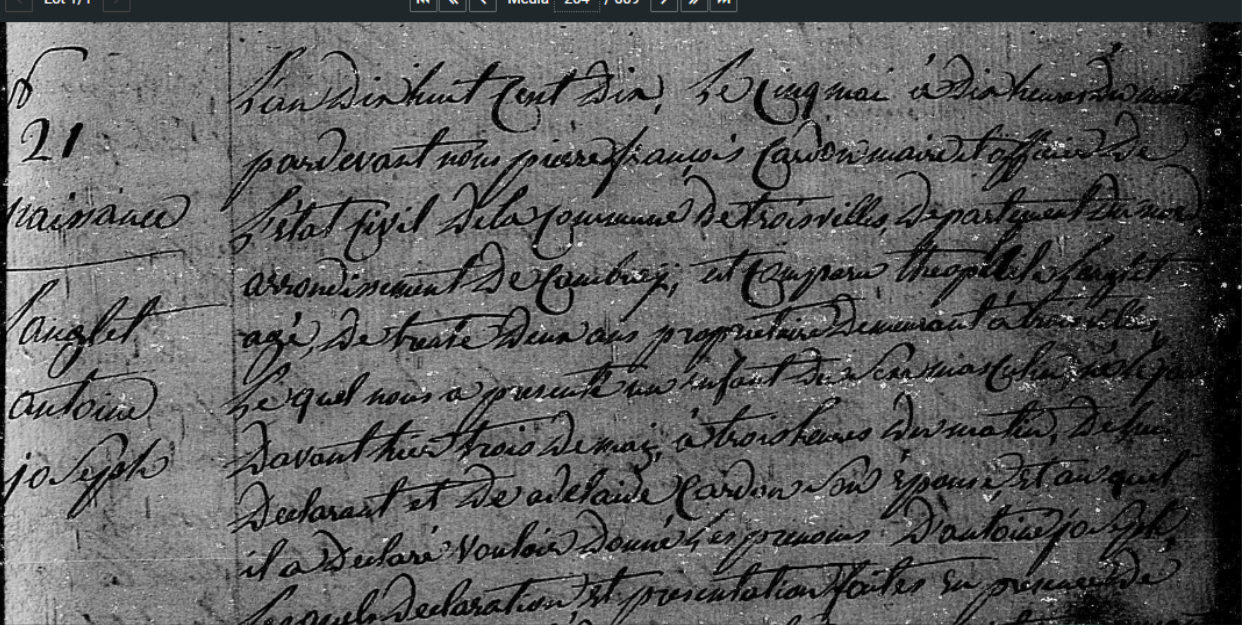 Lot 1/1
Média 264 / 609
6
21
naissance
Langlet
antoine
joseph
L'an dix huit Cent dix, Le Cinq mai à dix heures du matin
pardevant nous pierre françois Cardon maire et officier de
L'état Civil de la Commune de troisvilles, departement du nord
arrondissement de Cambray, est Comparu theophile Langlet
agé, de trente deux ans proprietaire demeurant à troisvilles,
Lequel nous a presenté un enfant du sexe masculin, né le jour
d'avant hier trois de mai, à trois heures du matin, de lui
declarant et de adelaide Cardon son épouse, et auquel
il a declaré vouloir donné Les prenoms d'antoine joseph,
Lesquels declaration et presentation faites en presence de